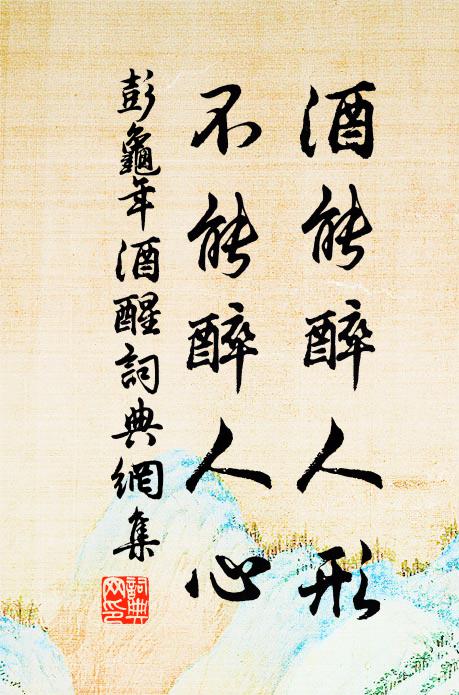 酒能醉人形
不能醉人心
彭龜年酒醒詞典網集